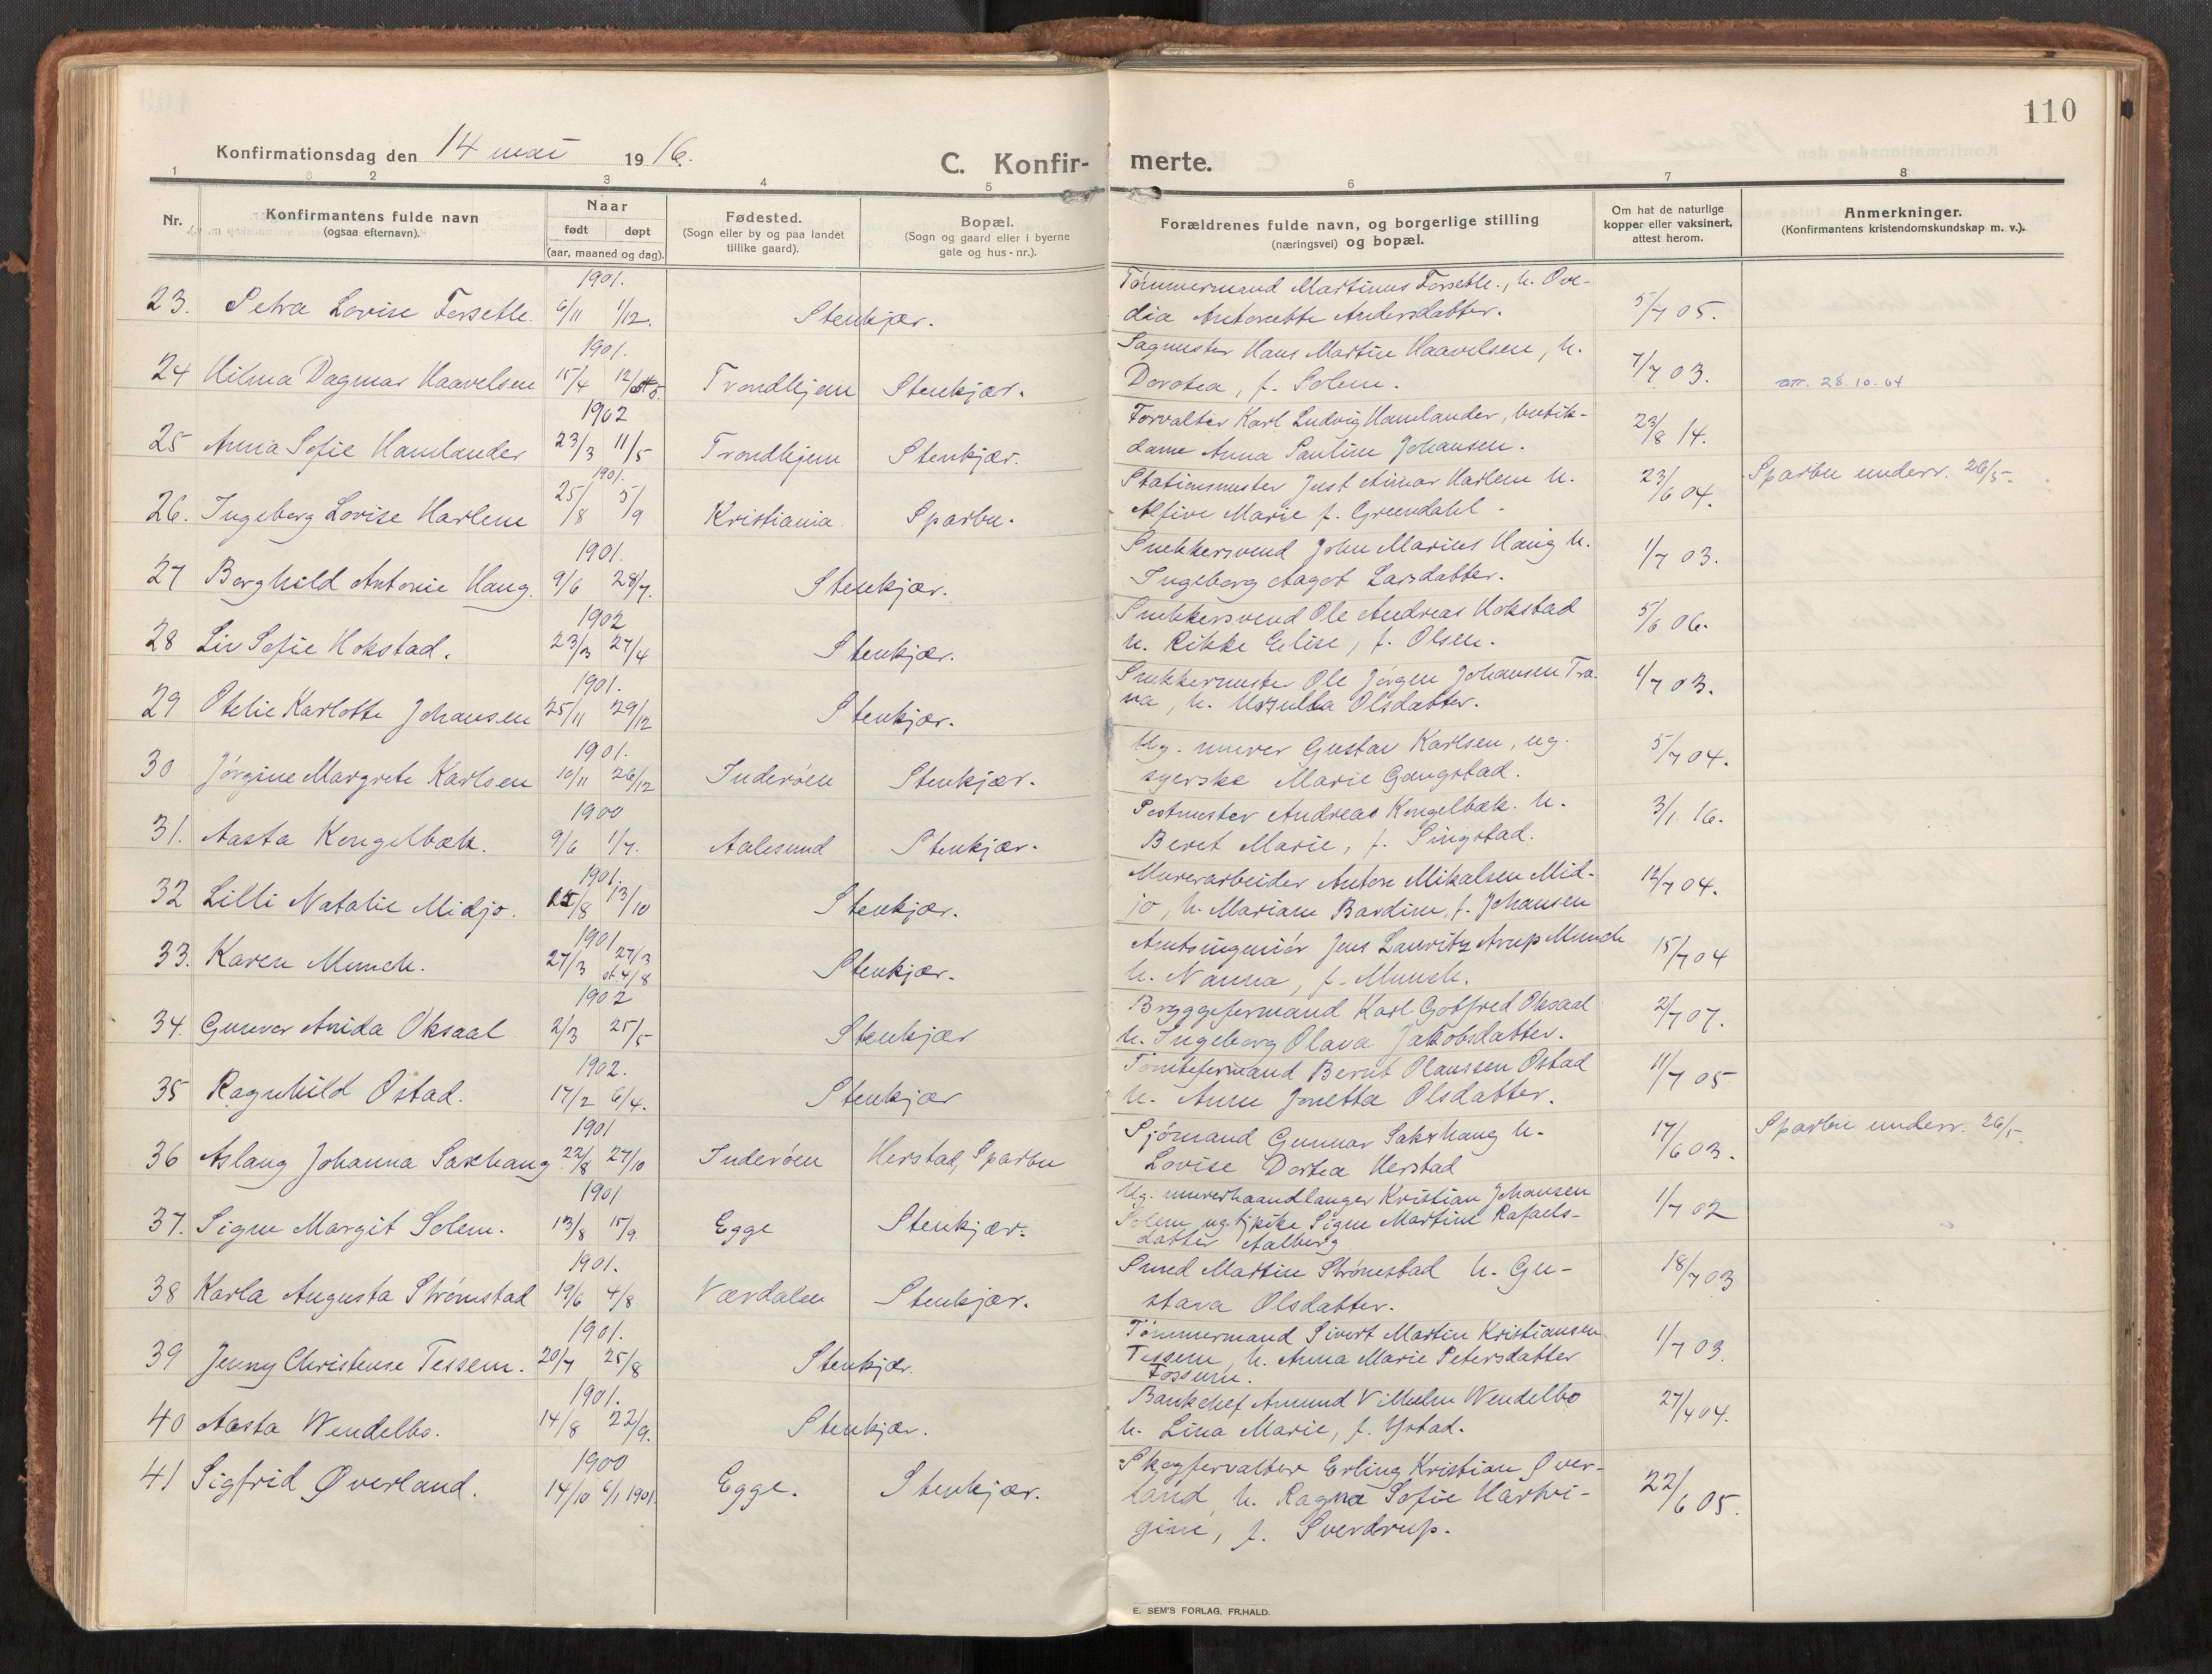 110
Konfirmationsdag den 14 mai 1916.
C. Konfir- merte.
1 2 3 4 5 6 7 8
Nr. Konfirmantens fulde navn (ogsaa efternavn). Naar født døpt (aar, maaned og dag). Fødested. (Sogn eller by og paa landet tillike gaard). Bopæl. (Sogn og gaard eller i byerne gate og hus-nr.). Forældrenes fulde navn, og borgerlige stilling (næringsvei) og bopæl. Om hat de naturlige kopper eller vaksinert, attest herom. Anmerkninger. (Konfirmantens kristendomskundskap m. v.).
1901. Tømmermand Martinus Forsetle., h. Ove-
23. Petra Lovise Forsetle. 6/11 1/12. Stenkjær. dia Antonette Andersdatter. 5/7 05.
1901. Sagmester Hans Martin Haavelsen, h.
24 Hilma Dagmar Haavelsen 15/4 12/ Trondhjem Stenkjær. Dorotea, f. Solem. 7/7 03. 28.10.64
1902 Forvalter Karl Ludvig Hamlander, butik-
25 Anna Sofie Hamlander 23/3 11/5 Trondhjem Stenkjær. dame Anna Pauline Johansen. 23/8 14.
1901. Stationsmester Just Harlem h.
26. Ingeborg Lovise Harlem 25/8 5/9 Kristiania. Sparbu. Alfive Marie f. Grundahl. 23/6 04. Sparbu underr. 26/5.
1901. Snekkersvend John Marius Haug h.
27 Borghild Antonie Haug. 9/6 28/7. Stenkjær. Ingeborg Aagot Larsdatter. 1/7 03.
1902 Snekkersvend Ole Andreas Hokstad
28 Liv Sofie Hokstad. 23/3 27/4 Stenkjær. h. Rikke Elise, f. Olsen. 5/6 06.
1901. Snekkermester Ole Jørgen Johansen Tra-
29 Otelie Karlotte Johansen 25/11 29/12 Stenkjær. na, h. Olsdatter. 1/7 03.
1901. Ug. murer Gustav Karlsen, ug.
30 Jørgine Margrete Karlsen 10/11 26/12 Inderøen Stenkjær. syerske Marie Gangstad. 5/7 04.
1900 Postmester Andreas Kongelbæk. h.
31. Aasta Kongelbæk. 9/6 1/7. Aalesund Stenkjær. Beret Marie, f. Singstad. 3/1 16.
1901. Murerarbeider Anton Mikalsen Mid-
32 Lilli Natalie Midjo. 25/8 13/10 Stenkjær. jo, h. Mariane Bardine, f. Johansen 12/7 04.
1901 Amtsingeniør Jens Lauritz Arup Munch
33. Karen Munch. 27/3 27/3 st. 4/8 Stenkjær. h. Nanna, f. Munch. 15/7 04
1902 Bryggeformand Karl Gotfred Oksaal
34. Gunvor Arida Oksaal 2/3 25/5 Stenkjær h. Ingeborg Olava Jakobsdatter. 2/7 07.
1902. Tomteformand Bernt Olaussen Ostad
35 Ragnhild Ostad. 17/2 6/4. Stenkjær h. Anne Jonetta Olsdatter. 11/7 05
1901 Sjømand Gunnar Sakshaug h.
36 Aslaug Johanna Saxhaug 22/8 27/10 Inderøen Herstad, Sparbu Lovise Dortea Herstad 17/6 03. Sparbu underr. 26/5.
1901 Ug. murerhaandlanger Kristian Johansen
37. Signe Margit Solem. 13/8 15/9. Egge Stenkjær. Solem, ug. tj.pike Signe Martine Rafaels-
datter Aalberg 1/7 02
1901. Smed Martin Strømstad h. Gu-
38 Karla Augusta Strømstad 19/6 4/8 Værdalen Stenkjær. stava Olsdatter. 18/7 03
1901. Tømmermand Sivert Martin Kristiansen
39 Jenny Christense Tessem. 20/7 25/8 Stenkjær. Tessem, h. Anna Marie Petersdatter
Fossum. 1/7 03.
1901. Bankchef Amund Vilhelm Wendelbo
40 Aasta Wendelbo. 14/8 22/9. Stenkjær. h. Lina Marie, f. Ystad. 27/4 04.
1900 Skogforvalter Erling Kristian Øver-
41 Sigfrid Øverland. 14/10 6/1 1901. Egge. Stenkjær. land, h. Ragna Sofie Hartvi-
gine, f. Sverdrup. 22/6 05.
E. SEM'S FORLAG. FR.HALD.